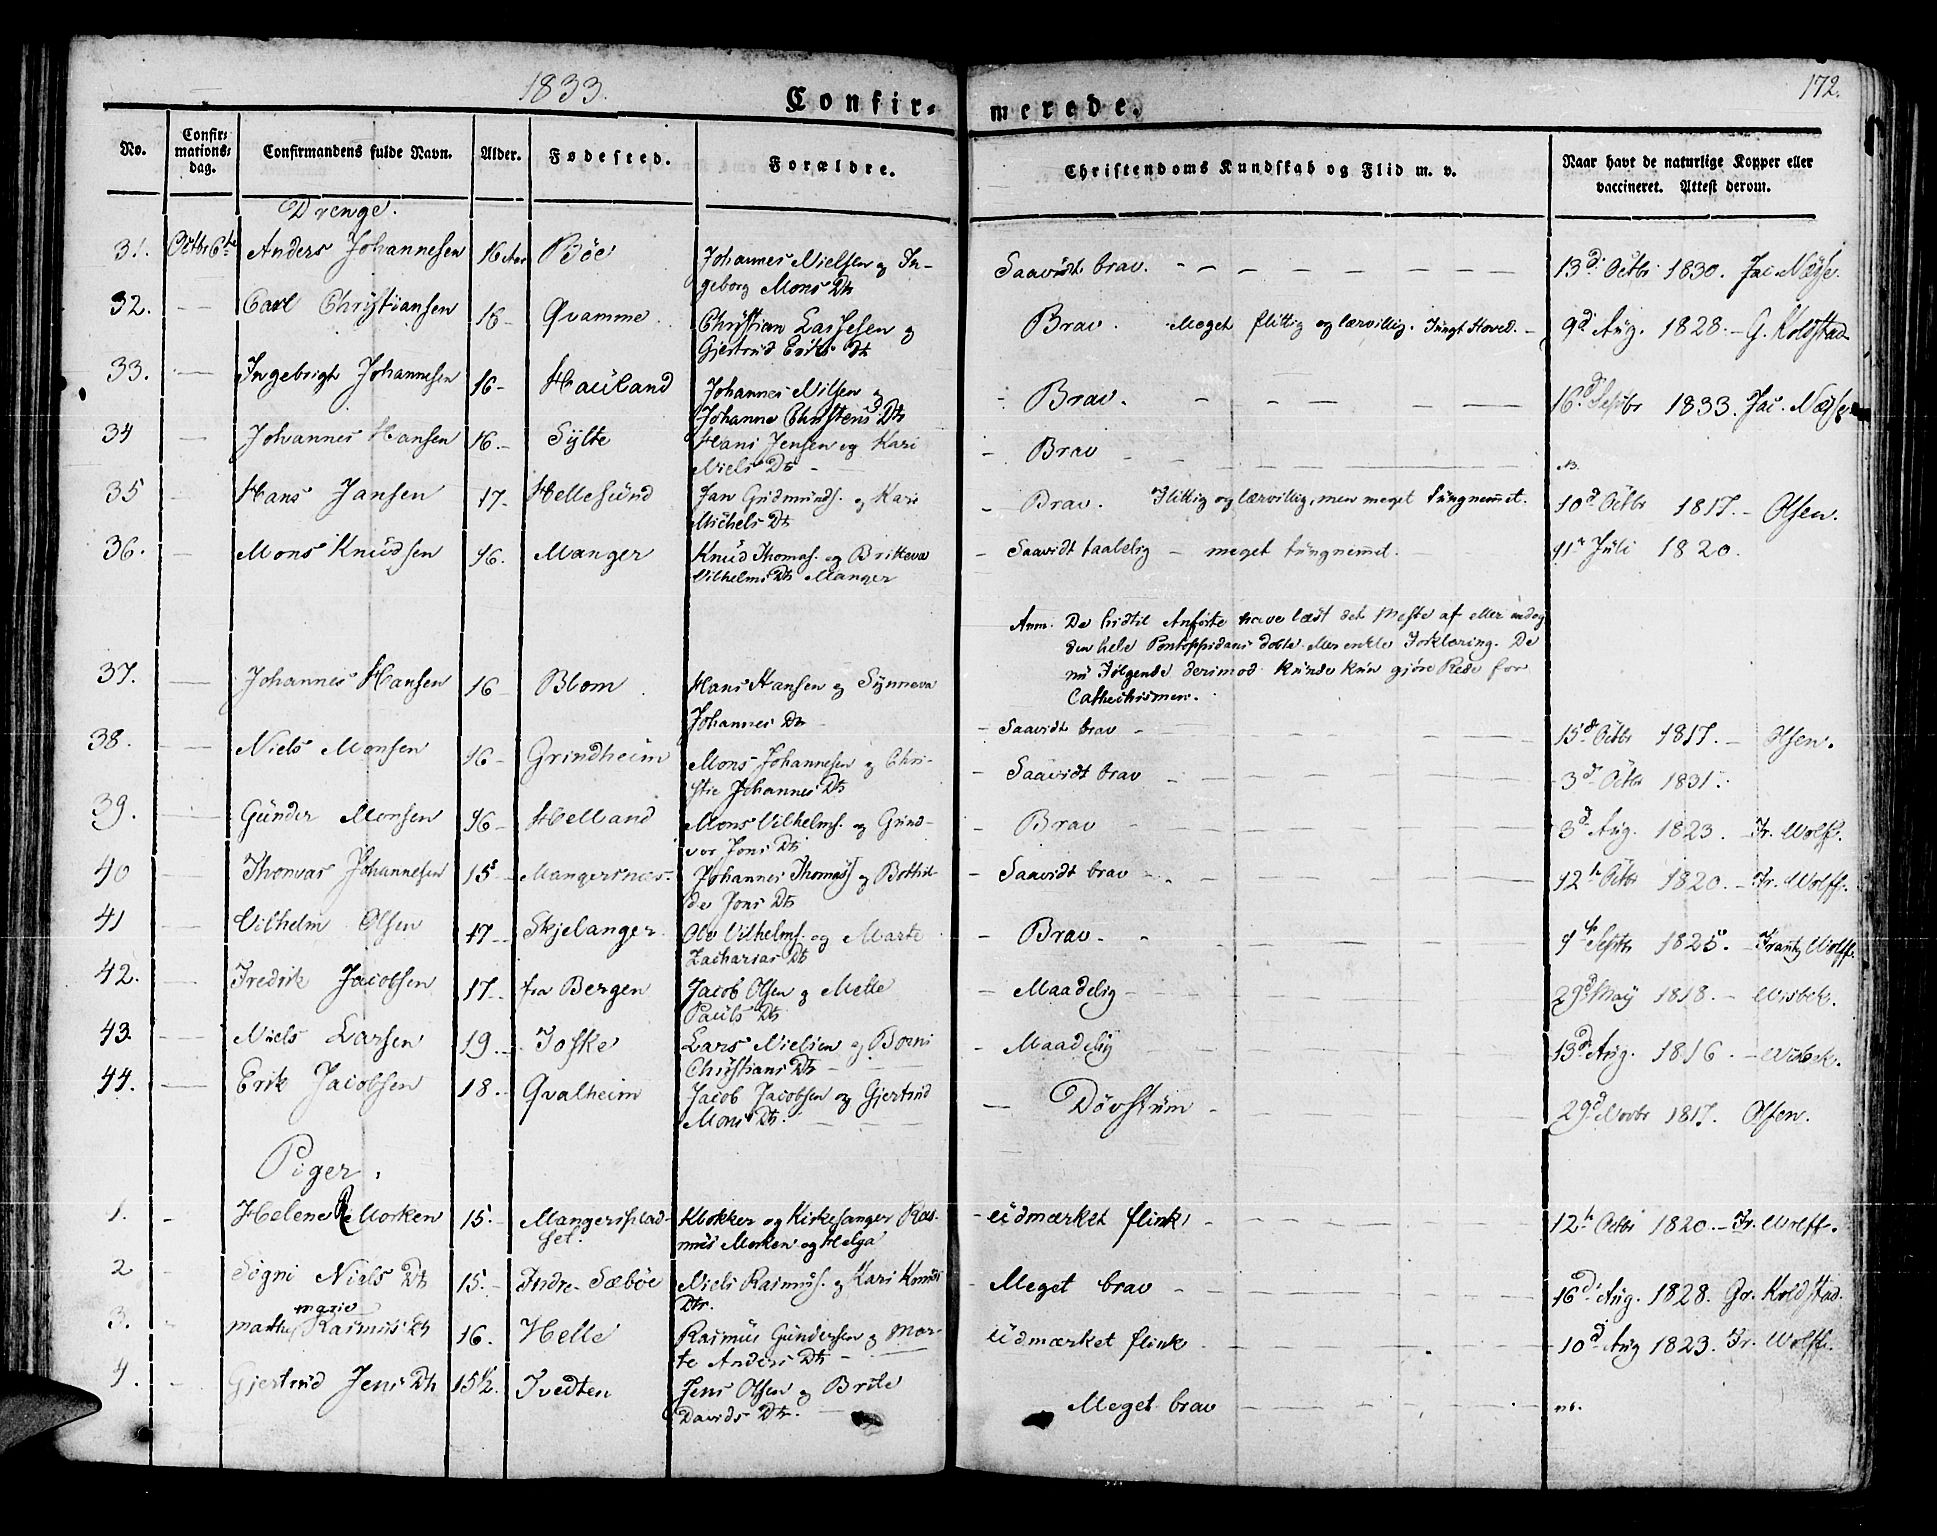 1833.
172.
Confir= merede.
No.
Confir=
mations=
dag.
Confirmandens fulde Navn.
Alder.
Fødested.
Forældre.
Christendoms Kundskab og Flid m. v.
Naar havt de naturlige Kopper eller
vaccineret. Attest derom.
Drenge.
31. Octbr 6te Anders Johannesen 16 Aar Bøe Johannes Nielsen og In-
geborg Mons Dtr Saavidt brav. 13d Octbr 1830. Jac. Nøyse.
32. Carl Christiansen 16 - Qvamme Christian Lassesen og
Gjertrud Eriks Dtr Brav. Meget flittig og lærvillig. Tungt Hoved. 9d Aug. 1828. - G. Koldstad
33. Ingebrigt Johannesen 16 - Hauland Johannes Nilsen og
Johanne Christens Dtr Brav. 16d Septbr 1833. Jac. Nøyse
34 Johannes Hansen 16. - Sylte Hans Jensen og Kari
Niels Dtr - Brav
35 Hans Jansen 17. - Hellesund Jan Gudmunds. og Kari
Michels Dtr Brav. Flittig og lærvillig, men meget tungnemt. 10d Octbr 1817. - Olsen.
36. Mons Knudsen 16. Manger Knud Thomas. og Britteva
Vilhelms Dtr Manger Saavidt taabelig - meget tungnemt. 11te Juli 1820.
Anm. De hidtil Anførte have læst det Meste af eller endog
den hele Pontoppidans doble eller enkte Forklaring. De
nu Følgende derimod kunde kun gjøre Rede for
Cathechismen.
37. Johannes Hansen 16 - Blom Hans Hansen og Synneva
Johannes Dtr Saavidt brav 15d Octbr 1817. - Olsen.
38. Niels Monsen 16 - Grindheim Mons Johannesen og Chri-
stie Johannes Dtr Saavidt brav 3d Octbr 1831.
39. Gunder Monsen 16 - Helland Mons Vilhelms. og Grind-
vor Jons Dtr Brav 8d Aug. 1823. Fr. Wolff.
40 Thomas Johannesen 15 - Mangersnæs. Johannes Thomas. og Bothil-
de Jons Dtr Saavidt brav 12te Octbr 1820. - Fr. Wolff.
41 Vilhelm Olsen 17 - Skjelanger. Ole Vilhelms. og Marte
Zacharias Dtr Brav. Septbr 1825. - Frantz Wolff.
42. Fredrik Jacobsen 17. - fra Bergen Jacob Olsen og Mette
Pauls Dtr Maadelig - 29d May 1818. - Wisbek.
43. Niels Larsen 19. - Toske Lars Nielsen og Boeni
Christians Dtr - Maadelig 13d Aug. 1816 - Wisbek.
44. Erik Jacobsen 18. - Qvalheim Jacob Jacobsen og Gjertrud
Mons Dtr. - Døvstum 29d Novbr 1817. Olsen.
Piger.
1. Helene R. Morken 15. - Mangersplad-
set. Klokker og Kirkesanger Ras-
mus Morken og Helga udmærket flink 12te Octbr 1820. - Fr. Wolff.
2 Søgni Niels Dtr 15. - Indre Sæbøe Niels Rasmus. og Kari Knuds
Dtr. Meget brav 16d Aug. 1828. Gr. Koldstad.
3. marie
Rasmus Dtr 16. Helle Rasmus Gundersen og Mar-
te Anders Dtr - udmærket flink 10d Aug 1823. Fr. Wolff.
4. Gjertrud Jens Dtr 15½. Tvedten Jens Olsen og Brite
Davids Dtr. Meget brav